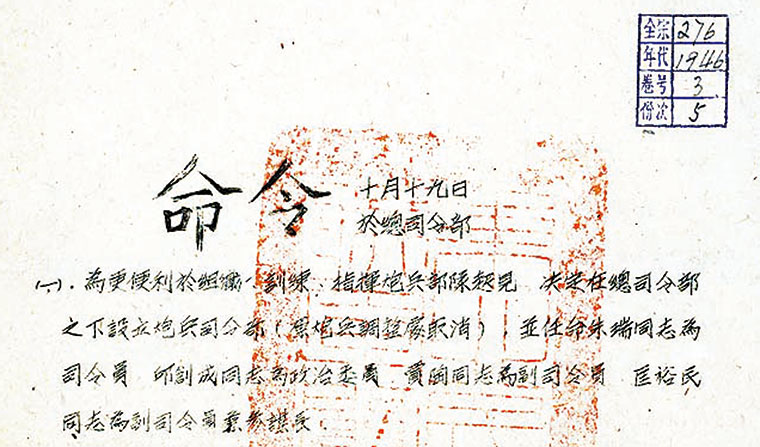 全宗 276
年代 1946
卷号 3
份次 5
命令
十月十九日
於總司令部
(一)、為更便利於組織、訓練、指揮炮兵部隊起見 决定在總司令部
之下設立炮兵司令部(原炮兵調整處取消),並任命朱瑞同志為
司令員 邱創成同志為政治委員 賈陶同志為副司令員 匡裕民
同志為副司令員兼參謀長